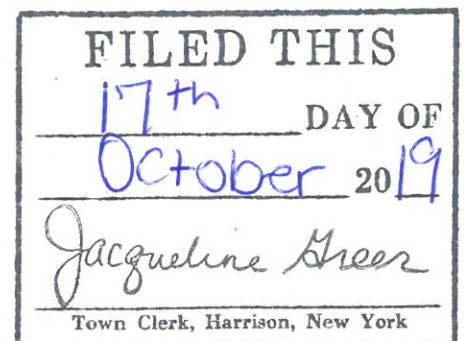 FILED THIS
17th DAY OF
October 2019
Jacqueline Greer
Town Clerk, Harrison, New York